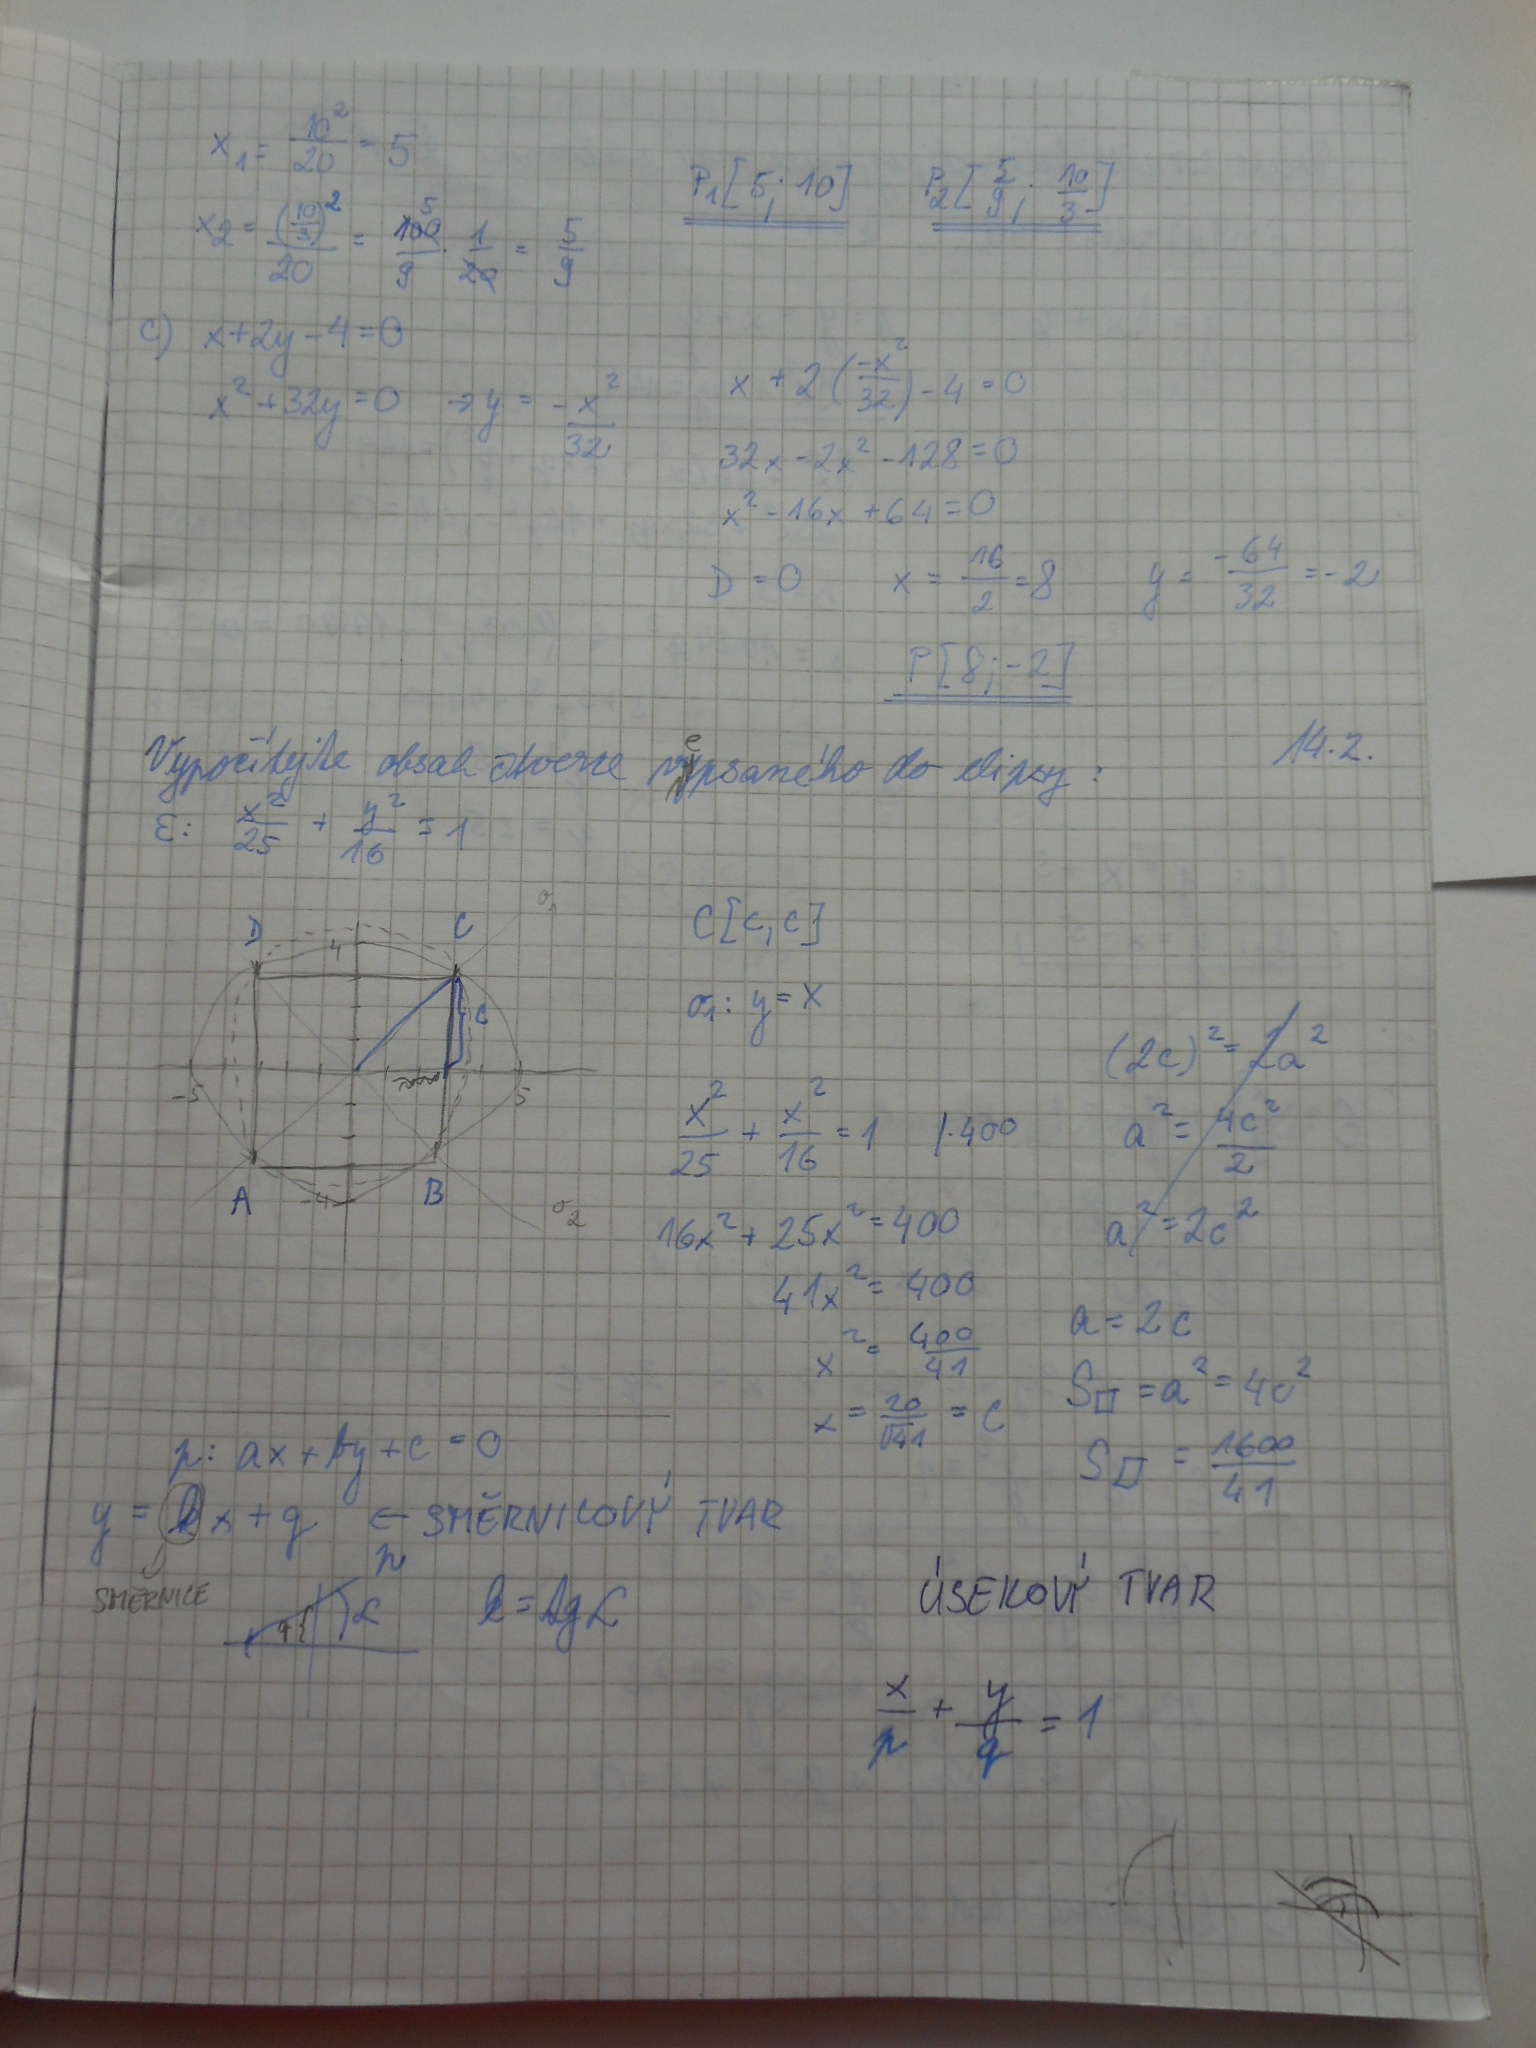 x₁ = 10²/20 = 5
P₁[5; 10] P₂[5/9; 10/3]
x₂ = (10/3)²/20 = 100/9 · 1/20 = 5/9
5
c) x+2y-4=0
x²+32y=0 → y = -x²/32
x + 2(-x²/32) - 4 = 0
32x - 2x² - 128 = 0
x² - 16x + 64 = 0
D = 0 x = 16/2 = 8 y = -64/32 = -2
P[8; -2]
14.2.
Vypočítejte obsah čtverce vepsaného do elipsy:
ε: x²/25 + y²/16 = 1
D 4 C σ₁
c
-5 5
A -4 B σ₂
C[c, c]
σ₁: y = x
x²/25 + x²/16 = 1 /·400
16x² + 25x² = 400
41x² = 400
x² = 400/41
x = 20/√41 = c
(2c)² = 2a²
a² = 4c²/2
a² = 2c²
a = 2c
S□ = a² = 4c²
S□ = 1600/41
p: ax + by + c = 0
y = kx + q ← SMĚRNICOVÝ TVAR
SMĚRNICE
p
q α
k = tg α
ÚSEKOVÝ TVAR
x/p + y/q = 1